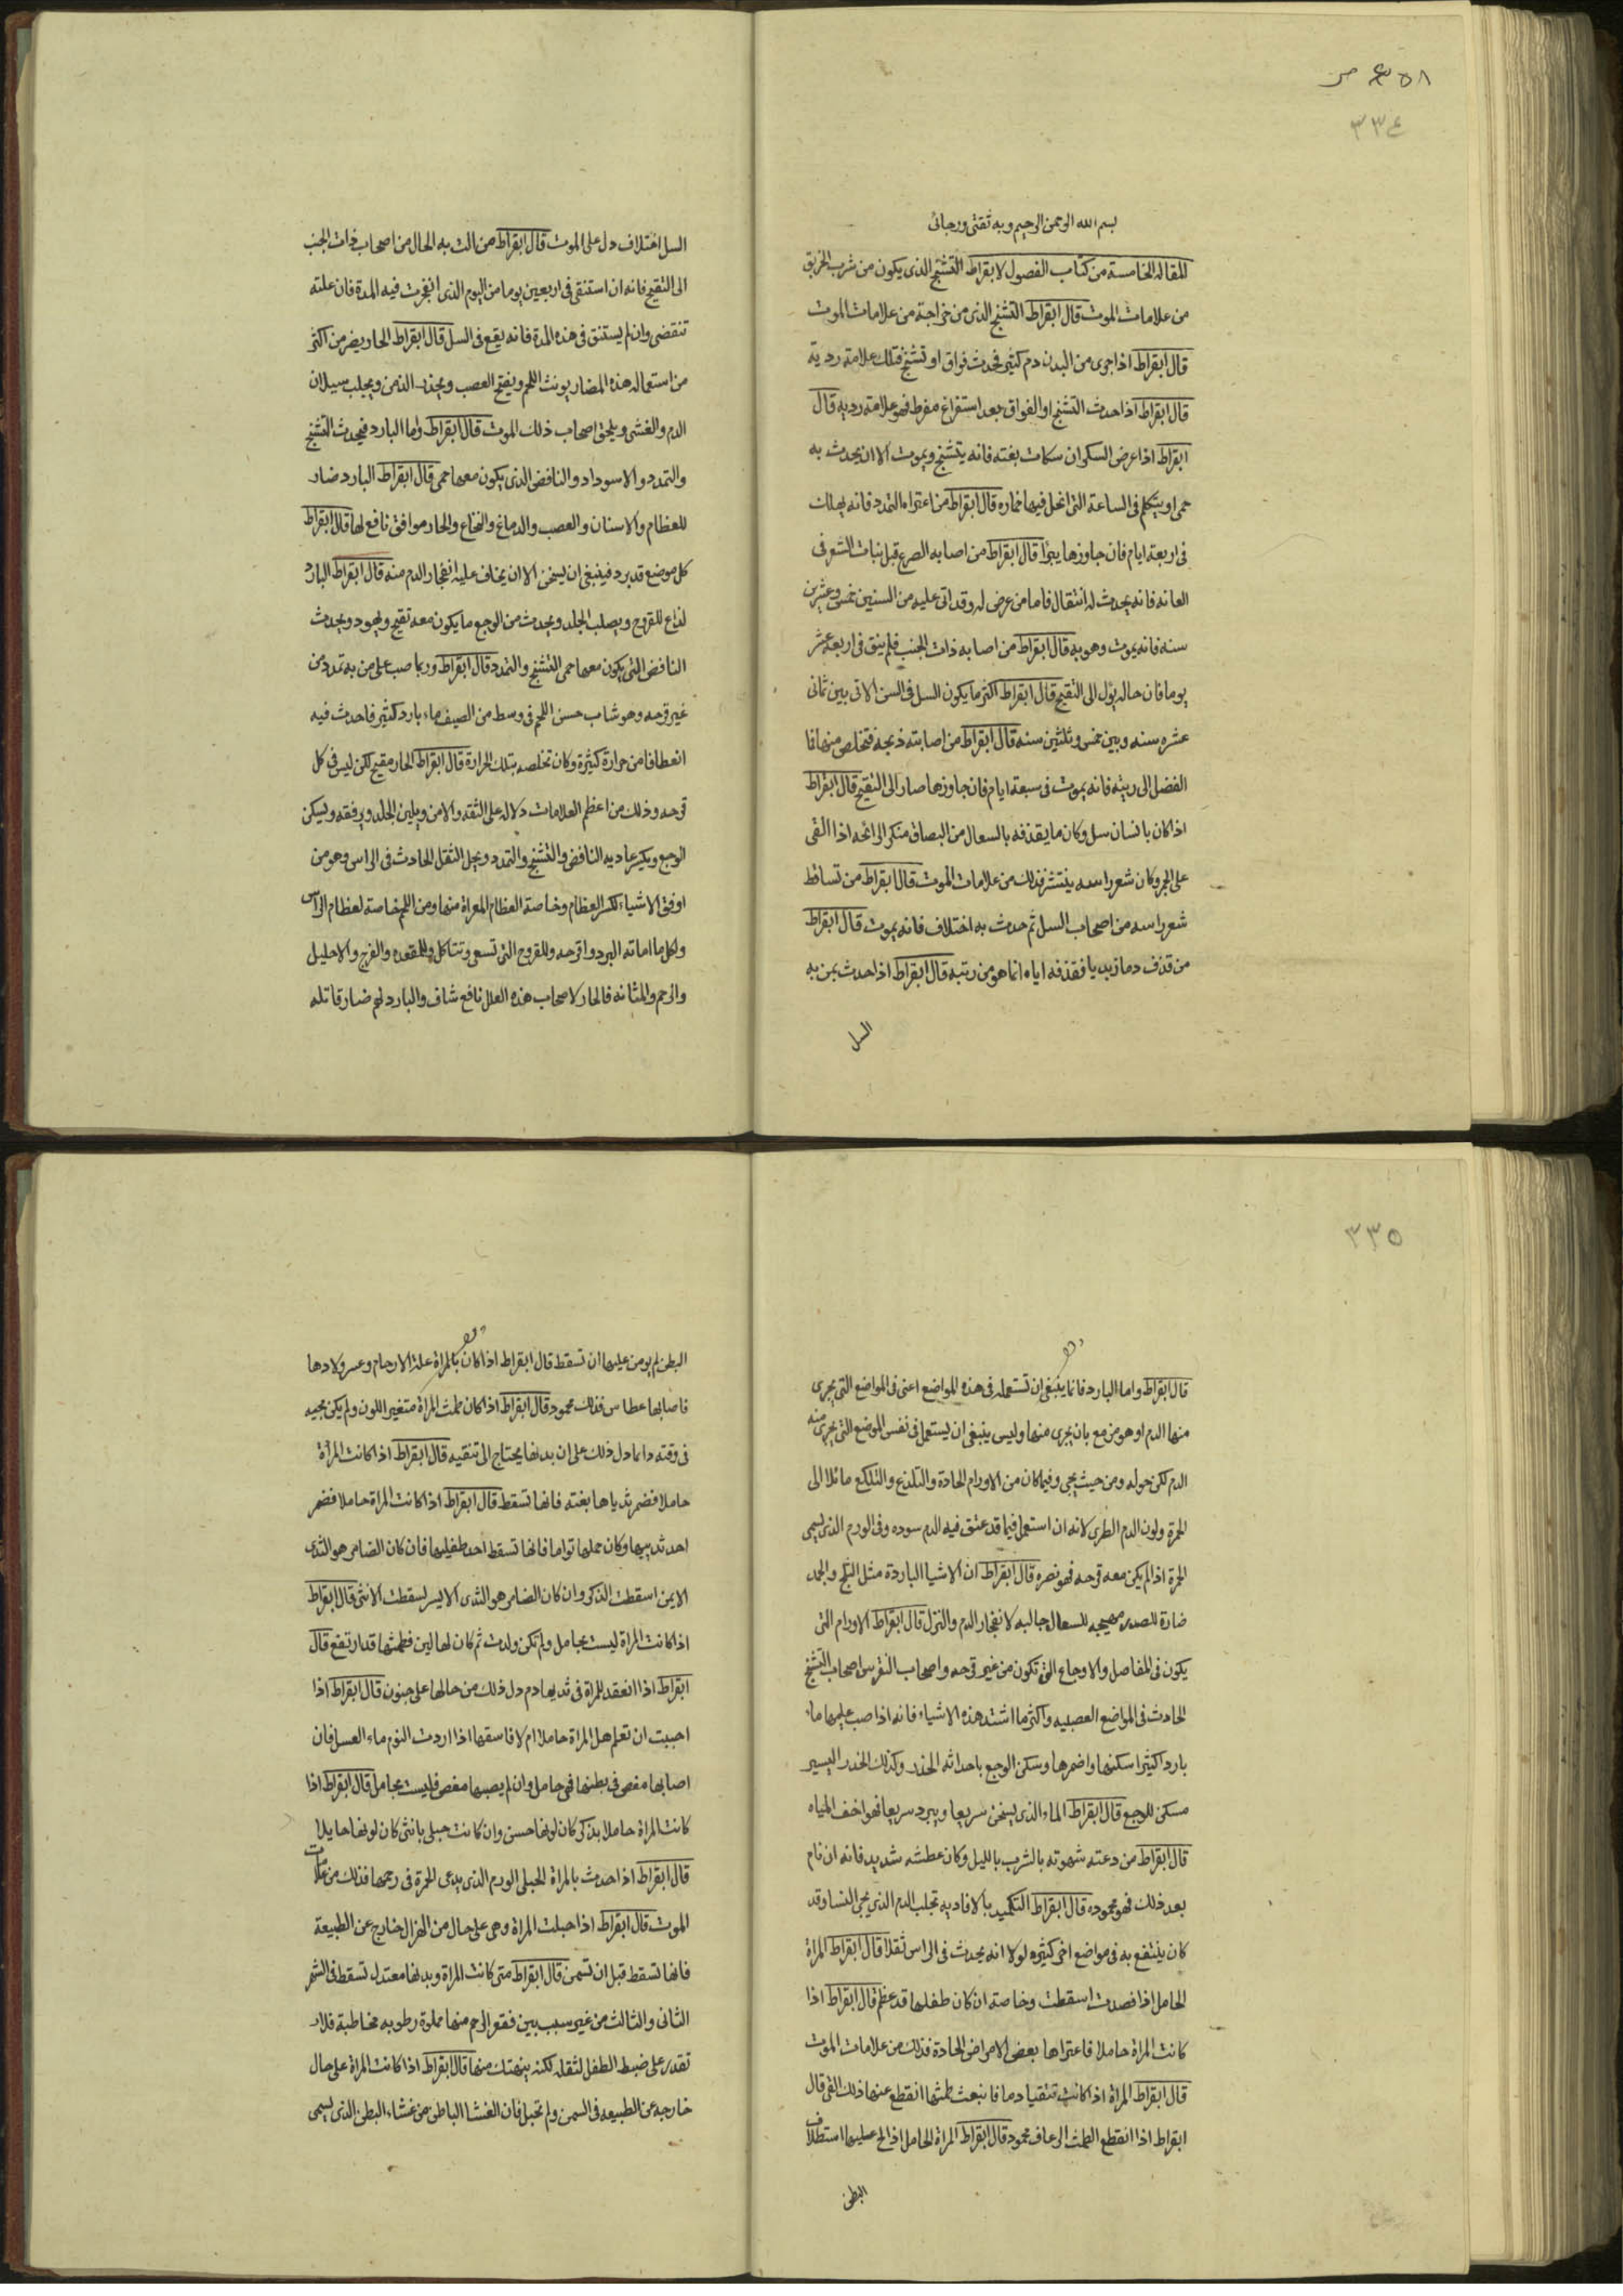 ٣٣٤
بسم الله الرحمن الرحيم وبه ثقتى ورجائى
المقاله الخامسة من كتاب الفصول لابقراط التشنج الذى يكون من شرب الخربق
من علامات الموت قال ابقراط التشنج الذى من خراجة من علامات الموت
قال ابقراط اذا جرى من البدن دم كثير فحدث فواق او تشنج فتلك علامة ردية
قال ابقراط اذا حدث التشنج او الفواق بعد استفراغ مفرط فهو علامة رديه قال
ابقراط اذا عرض السكران سكات بغته فانه يتشنج ويموت الا ان يحدث به
حمى او يتكلم فى الساعة التى انحل فيها خماره قال ابقراط من اعتراه التمدد فانه يهلك
فى اربعة ايام فان جاوزها يبرأ قال ابقراط من اصابه الصرع قبل نبات الشعر فى
العانه فانه يحدث له انتقال فاما من عرض له وقد اتى عليه من السنين خمس وعشرين
سنه فانه يموت وهو به قال ابقراط من اصابه ذات الجنب فلم ينق فى اربعة عشر
يوما فان حاله يؤل الى التقيح قال ابقراط اكثر ما يكون السل فى السن الاتى بين ثمانى
عشره سنه وبين خمس وثلثين سنه قال ابقراط من اصابته ذبحه فتخلص منها فا
الفضل الى ريته فانه يموت فى سبعة ايام فان جاوزها صار الى التقيح قال ابقراط
اذا كان بانسان سل وكان ما يقذفه بالسعال من البصاق منكر الرائحه اذا القى
على الجمر وكان شعر راسه ينتثر فذلك من علامات الموت قال ابقراط من تساقط
شعر راسه من اصحاب السل ثم حدث به اختلاف فانه يموت قال ابقراط
من قذف دما زبديا فقذفه اياه انما هو من ريته قال ابقراط اذا حدث بمن به
السل
السل اختلاف دل على الموت قال ابقراط من الت به الحال من اصحاب ذات الجنب
الى التقيح فانه ان استنقى فى اربعين يوما من اليوم الذى انفجرت فيه المدة فان علته
تنقضى وان لم يستنق فى هذه المدة فانه يقع فى السل قال ابقراط الحار يضر من اكثر
من استعماله هذه المضار يونث اللحم ويفتح العصب ويخدر الذهن ويجلب سيلان
الدم والغشى ويلحق اصحاب ذلك الموت قال ابقراط واما البارد فيحدث التشنج
والتمدد والاسوداد والنافض الذى يكون معها حمى قال ابقراط البارد ضار
للعظام والاسنان والعصب والدماغ والنخاع والحار موافق نافع لها قال ابقراط
كل موضع قد برد فينبغى ان يسخن الا ان يخاف عليه انفجار الدم منه قال ابقراط البارد
لذاع للقروح ويصلب الجلد ويحدث من الوجع ما يكون معه تقيح ويهود ويحدث
النافض التى يكون معها حمى التشنج والتمدد قال ابقراط وربما صب على من به تمدد من
غير قرحه وهو شاب حسن اللحم فى وسط من الصيف ماء بارد كثير فاحدث فيه
انعطافا من حرارة كثيرة وكان تخلصه بتلك الحرارة قال ابقراط الحار مقيح لكن ليس فى كل
قرحه وذلك من اعظم العلامات دلاله على الثقه والامن ويلين الجلد ويرفقه ويسكن
الوجع ويكسر عاديه النافض والتشنج والتمدد ويحل الثقل الحادث فى الراس وهو من
اوفق الاشياء لكسر العظام وخاصة العظام المعراة منها ومن اللحم خاصة لعظام الراس
ولكل ما اماته البرد واقرحه وللقروح التى تسعى وتتاكل وللمقعده والفرج والاحليل
والرحم والمثانه فالحار لاصحاب هذه العلل نافع شاف والبارد لهم ضار قاتله
٣٣٥
قال ابقراط واما البارد فانما ينبغى ان تستعمله فى هذه المواضع اعنى فى المواضع التى يجرى
منها الدم او هو مزمع بان يجرى منها وليس ينبغى ان يستعمل فى نفس الموضع التى يجرى منه
الدم لكن حوله ومن حيث يجى وفيما كان من الاورام الحادة والتلذع والتلكع مائلا الى
الحمرة ولون الدم الطرى لانه ان استعمل فيما قد عتق فيه الدم سوده وفى الورم الذى يسمى
الحمرة اذا لم يكن معه قرحه فهو نصره قال ابقراط ان الاشيا الباردة مثل الثلج والجمد
ضارة للصدر مهيجه للسعال جالبه لانفجار الدم والنزل قال ابقراط الاورام التى
يكون فى المفاصل والاوجاع التى تكون من غير قرحه واصحاب النقرس اصحاب التشنج
الحادث فى المواضع العصبيه واكثر ما اشتد هذه الاشياء فانه اذا صب عليها ماء
بارد اكثيرا سكنها واضمرها وسكن الوجع باحداثه الخدر وكذلك الخدر اليسير
مسكن للوجع قال ابقراط الماء الذى يسخن سريعا ويبرد سريعا فهو اخف المياه
قال ابقراط من دعته شهوته بالشرب بالليل وكان عطشه شديد فانه ان نام
بعد ذلك فهو محموده قال ابقراط التكميد بالافاويه تجلب الدم الذى يجى النسا وقد
كان ينتفع به فى مواضع اخر كثيره لولا انه يحدث فى الراس ثقلا قال ابقراط المراة
الحامل اذا فصدت اسقطت وخاصة ان كان طفلها قد عظم قال ابقراط اذا
كانت المراة حاملا فاعتراها بعض الامراض الحادة فذلك من علامات الموت
قال ابقراط المراة اذا كانت تتقيا دما فانبعث طمثها انقطع عنها ذلك القى قال
ابقراط اذا انقطع الطمث الرعاف محمود قال ابقراط المراة الحامل اذا لح عليها استطلاق
البطن
البطن لم يومن عليها ان تسقط قال ابقراط اذا كان بالمراة علة الارحام وعسر ولادها
فاصابها عطاس فذلك محمود قال ابقراط اذا كان طمث المراة متغير اللون ولم يكن مجيه
فى وقته دائما دل ذلك على ان بدنها يحتاج الى تنقيه قال ابقراط اذا كانت المراة
حاملا فضمر ثدياها بغته فانها تسقط قال ابقراط اذا كانت المراة حاملا فضمر
احد ثدييها وكان حملها تواما فانها تسقط احد طفليها فان كان الضامر هو الثدى
الايمن اسقطت الذكر وان كان الضامر هو الثدى الايسر اسقطت الانثى قال ابقراط
اذا كانت المراة ليست بحامل ولم تكن ولدت ثم كان لها لبن فطمثها قد ارتفع قال
ابقراط اذا انعقد للمراة فى ثديها دم دل ذلك من حالها على جنون قال ابقراط اذا
احببت ان تعلم هل المراة حاملا ام لا فاسقها اذا اردت النوم ماء العسل فان
اصابها مغص فى بطنها فهى حامل وان لم يصبها مغص فليست بحامل قال ابقراط اذا
كانت المراة حاملا بذكر كان لونها حسن وان كانت حبلى بانثى كان لونها حايلا
قال ابقراط اذا حدث بالمراة الحبلى الورم الذى يدعى الحمرة فى رحمها فذلك من علامات
الموت قال ابقراط اذا حبلت المراة وهى على حال من الهزال خارج عن الطبيعة
فانها تسقط قبل ان تسمن قال ابقراط متى كانت المراة وبدنها معتدل تسقط فى الشهر
الثانى والثالث من غير سبب بين فقعر الرحم منها مملوة رطوبه مخاطية فلا
تقدر على ضبط الطفل لثقله لكنه ينهتك منها قال ابقراط اذا كانت المراة على حال
خارجه عن الطبيعه فى السمن ولم تحبل فان الغشا الباطن من غشاء البطن الذى يسمى